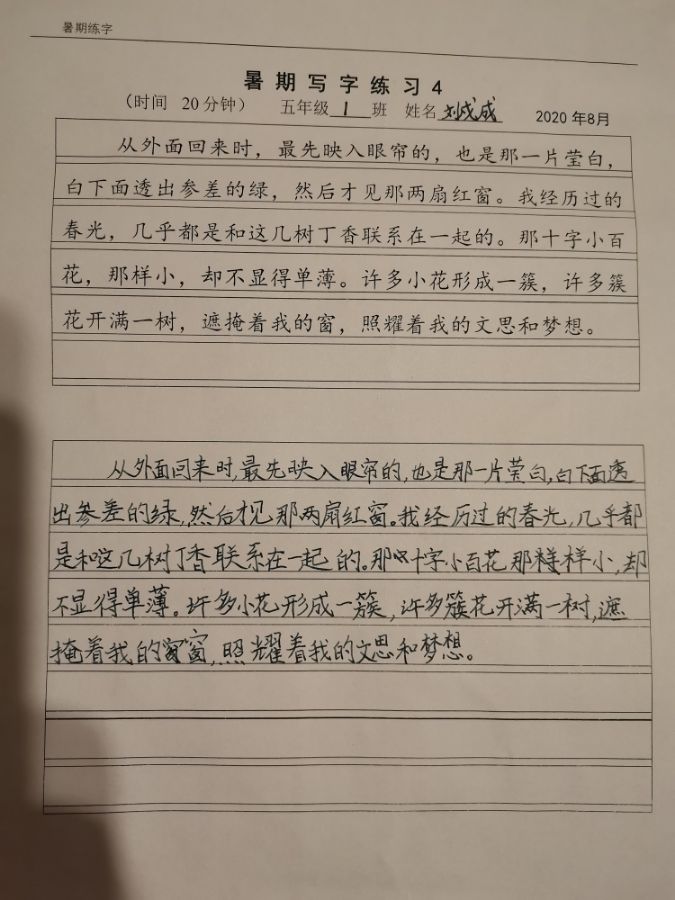 暑期练字
暑期写字练习4
（时间 20分钟） 五年级 1 班 姓名 刘成 2020年8月
从外面回来时，最先映入眼帘的，也是那一片莹白，
白下面透出参差的绿，然后才见那两扇红窗。我经历过的
春光，几乎都是和这几树丁香联系在一起的。那十字小百
花，那样小，却不显得单薄。许多小花形成一簇，许多簇
花开满一树，遮掩着我的窗，照耀着我的文思和梦想。
从外面回来时,最先映入眼帘的,也是那一片莹白,白下面透
出参差的绿,然后才见那两扇红窗。我经历过的春光,几乎都
是和这几树丁香联系在一起的。那十字小百花那样小,却
不显得单薄。许多小花形成一簇,许多簇花开满一树,遮
掩着我的窗,照耀着我的文思和梦想。